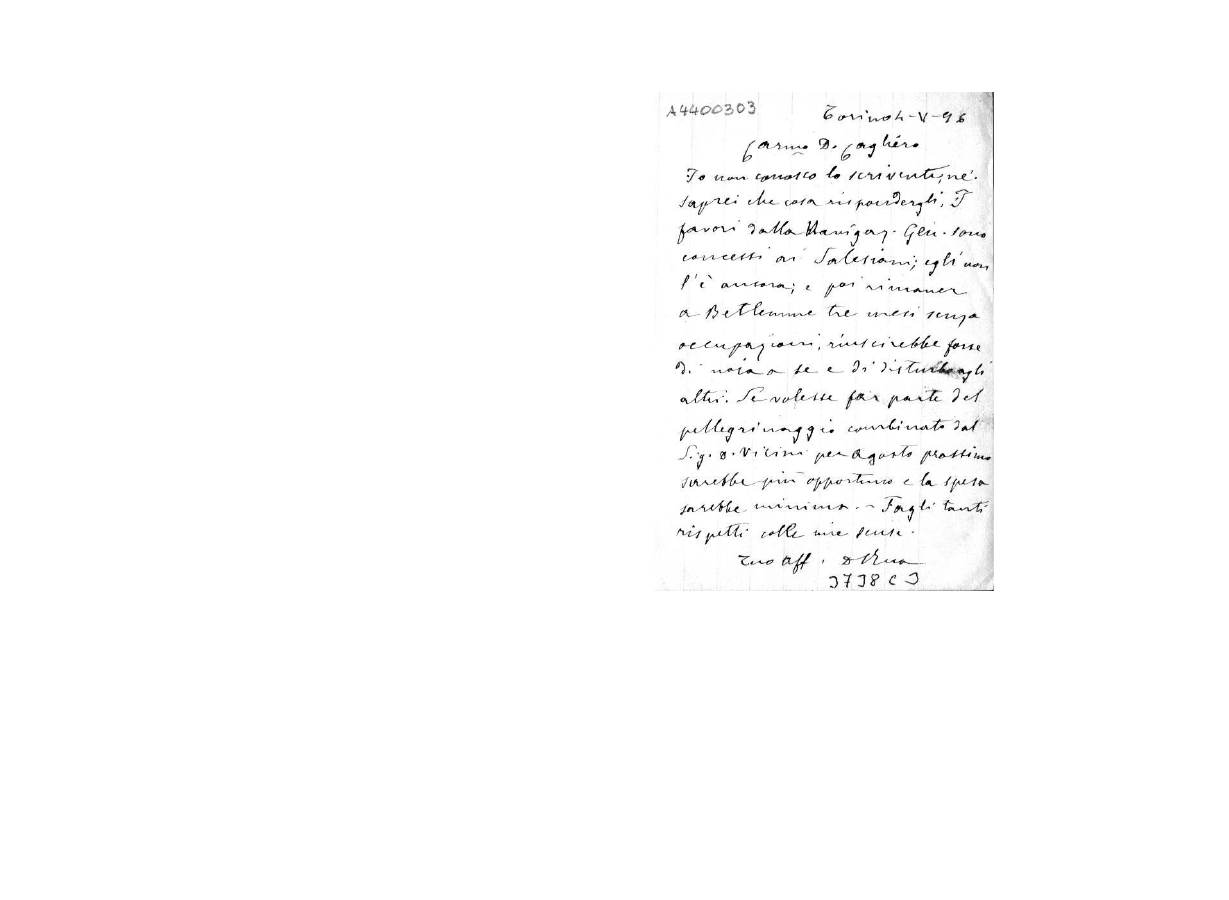 A4400303
Torino 4-V-96
Carmo D. Cagliero
Io non conosco lo scrivente, nè
saprei che cosa rispondergli; I
favori dalla Navigaz. Gen. sono
concessi ai Salesiani; egli non
l'è ancora; e poi rimaner
a Betlemme tre mesi senza
occupazioni, riuscirebbe forse
di noia a se e di disturbo agli
altri. Se volesse far parte del
pellegrinaggio combinato dal
Sig. D. Vicini per Agosto prossimo
sarebbe più opportuno e la spesa
sarebbe minima. - Fagli tanti
rispetti colle mie scuse.
Tuo aff. D Rua
3738 C 3